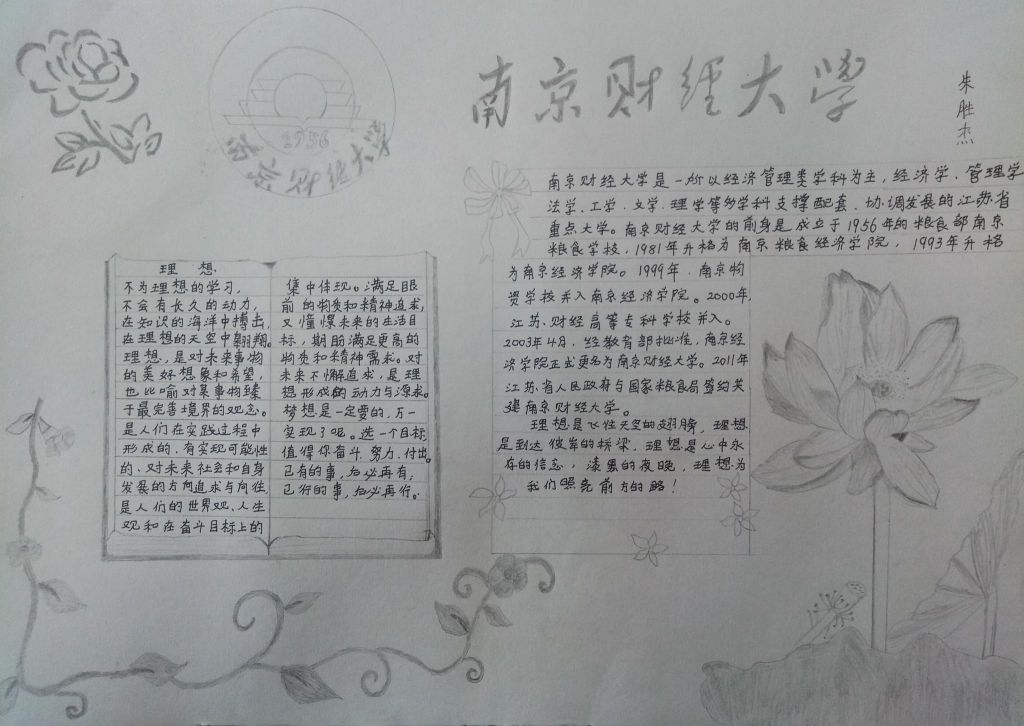 南京财经大学
朱胜杰
1956
南京财经大学
理 想
不为理想的学习,
不会有长久的动力,
在知识的海洋中搏击,
在理想的天空中翱翔。
理想,是对未来事物
的美好想象和希望,
也比喻对某事物臻
于最完善境界的观念。
是人们在实践过程中
形成的、有实现可能性
的、对未来社会和自身
发展的方向追求与向往,
是人们的世界观、人生
观和在奋斗目标上的
集中体现。满足眼
前的物质和精神追求,
又憧憬未来的生活目
标,期盼满足更高的
物质和精神需求。对
未来不懈追求,是理
想形成的动力与源泉。
梦想是一定要的,万一
实现了呢。选一个目标,
值得你奋斗、努力、付出。
已有的事,后必再有;
已行的事,后必再行。
南京财经大学是一所以经济管理类学科为主,经济学、管理学
法学、工学、文学、理学等多学科支撑配套、协调发展的江苏省
重点大学。南京财经大学的前身是成立于1956年的粮食部南京
粮食学校,1981年升格为南京粮食经济学院,1993年升格
为南京经济学院。1999年,南京物
资学校并入南京经济学院。2000年,
江苏财经高等专科学校并入。
2003年4月,经教育部批准,南京经
济学院正式更名为南京财经大学。2011年
江苏省人民政府与国家粮食局签约共
建南京财经大学。
理想是飞往天空的翅膀,理想
是到达彼岸的桥梁,理想是心中永
存的信念,漆黑的夜晚,理想为
我们照亮前方的路!